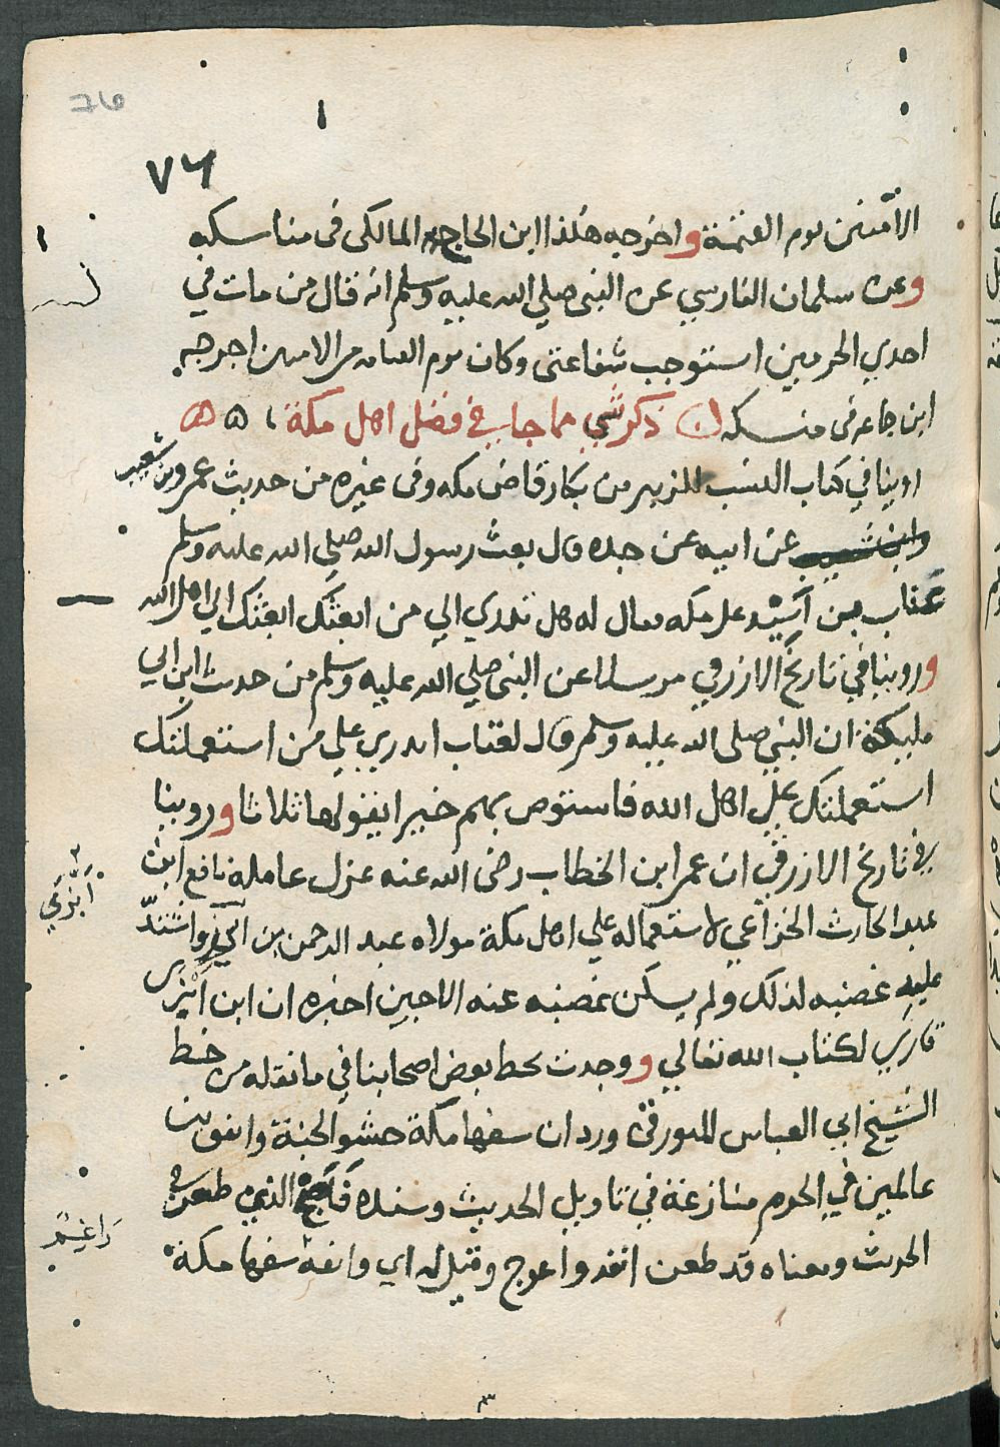 ٧٦
الآمنين يوم القيمة واخرجه هكذا ابن الحاج المالكى فى مناسكه
وعن سلمان الفارسي عن النبى صلي الله عليه وسلم انه قال من مات في
احدي الحرمين استوجب شفاعتى وكان يوم القيامه من الامنين اخرجه
ابن جماعه فى منسكه ذكر شي مما جا في فضل اهل مكة
روينا في كتاب النسب للزبير بن بكار قاضى مكه وفى غيره من حديث عمرو بن شعيب
عن ابيه عن جده قال بعث رسول الله صلي الله عليه وسلم
عتاب بن أسيد على مكه فقال له هل تدري الي من ابعثك ابعثك الي اهل الله
وروينا في تاريخ الازرقي مرسلا عن النبى صلي الله عليه وسلم من حديث ابن ابي
مليكة ان النبي صلى الله عليه وسلم قال لعتاب اتدري علي من استعملتك
استعملتك علي اهل الله فاستوص بهم خيرا يقولها ثلاثا وروينا
في تاريخ الازرقي ان عمر ابن الخطاب رضى الله عنه عزل عامله نافع ابن
عبد الحارث الخزاعي لاستعماله علي اهل مكة مولاه عبد الرحمن بن ابزى واشتدّ
أبزي
عليه غضبه لذلك ولم يسكن غضبه عنه الا حين اخبره ان ابن ابزى
قاري لكتاب الله تعالي ووجدت بخط بعض اصحابنا في ما نقله من خط
الشيخ ابي العباس الميورقى ورد ان سفها مكة حشو الجنة واتفق بين
عالمين في الحرم منازعة في تاويل الحديث وسنده فاصبح الذي طعن في
الحديث ومعناه قد طعن انفه واعوج وقيل له اي وانفه سفها مكة